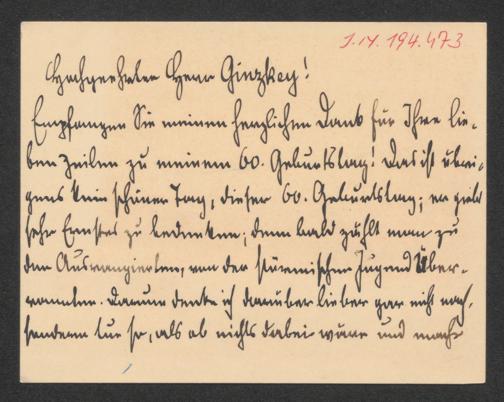 J.N. 194.473
Hochgeehrter Herr Ginzkey!
Empfangen Sie meinen herzlichen Dank für Ihre lie-
ben Zeilen zu meinem 60. Geburtstag! Das ist übri-
gens kein schöner Tag, dieser 60. Geburtstag; er gibt
sehr Ernstes zu bedenken; denn bald zählt man zu
den Ausrangierten, von der stürmischen Jugend Über-
rannten. Darum denke ich darüber lieber gar nicht nach,
sondern tue so, als ob nichts dabei wäre und mache